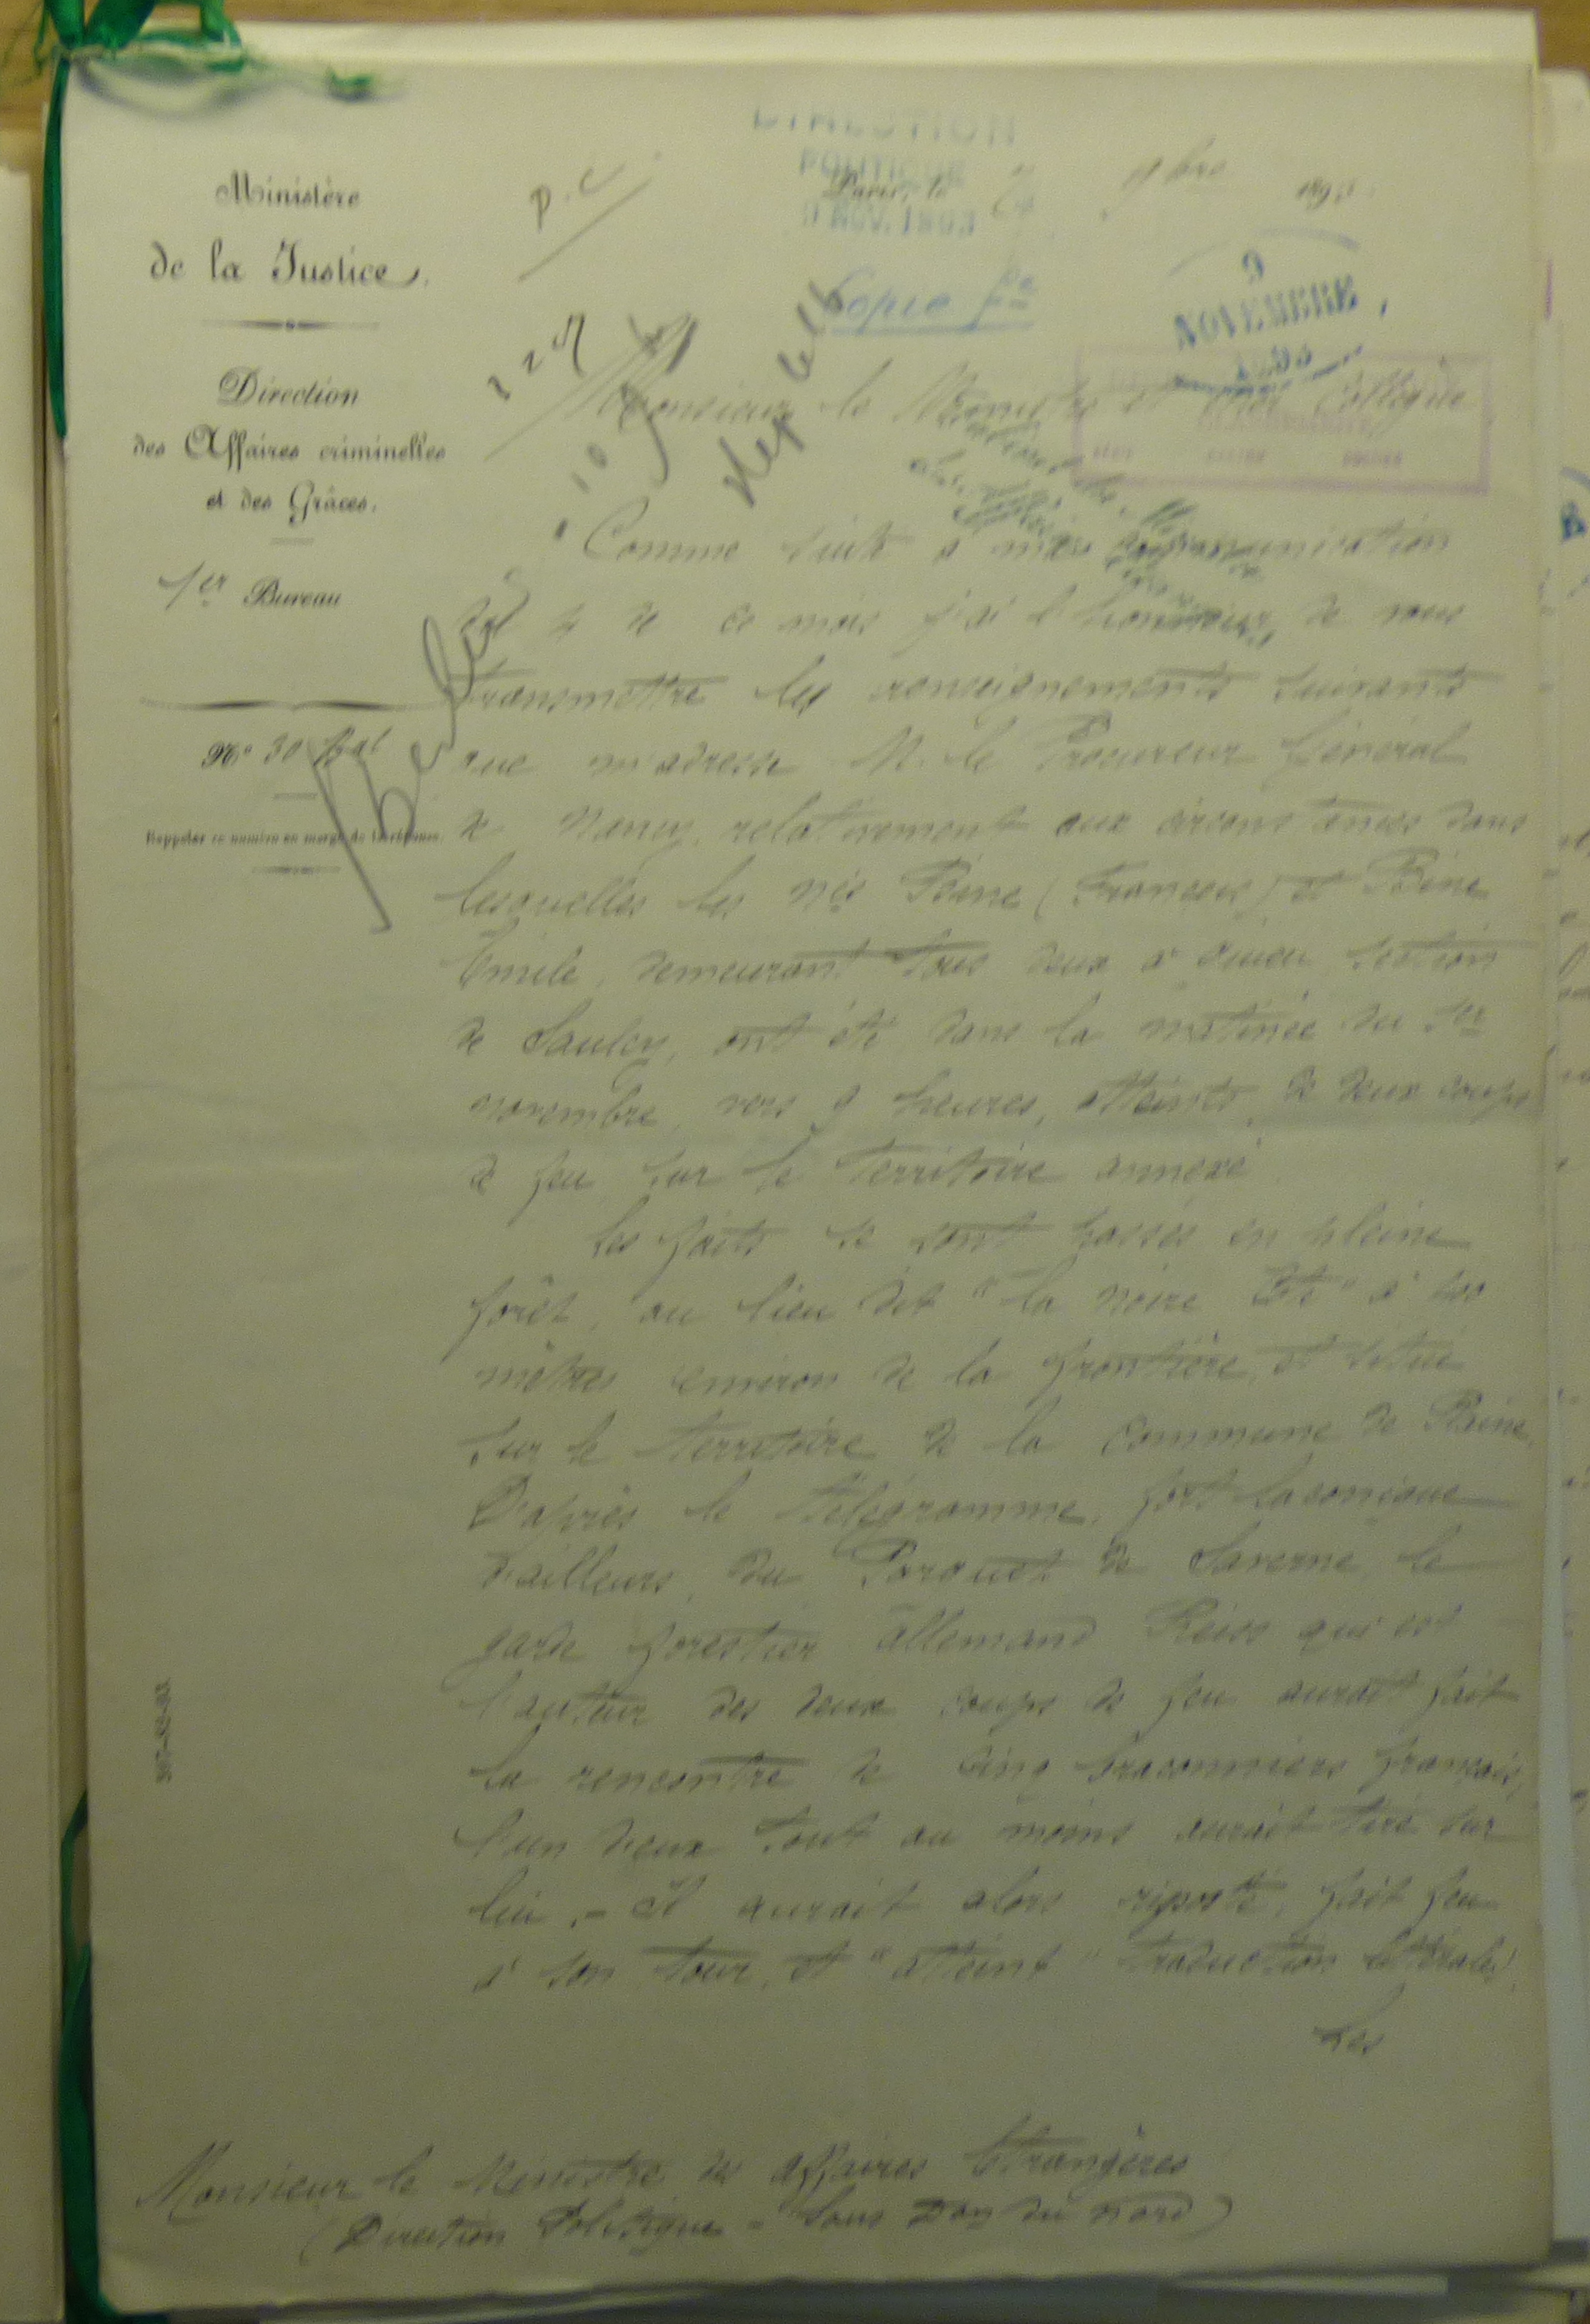 Ministère
de la Justice.
Direction
des Affaires criminelles
et des Grâces.
1er Bureau
N° 30
Rappeler ce numéro en marge de la réponse.
DIRECTION
POLITIQUE
NOV. 1893
Paris, le 9bre 189
p.c.
Copie
9
NOVEMBRE
Monsieur le Ministre et cher Collègue
Comme suite à ma communication
de ce mois j'ai l'honneur de vous
transmettre les renseignements suivants
que m'adresse M. le Procureur Général
de Nancy, relativement aux circonstances dans
lesquelles les (François) et
Emile, demeurant tous deux à section
de Saulcy, ont été dans la matinée du 1er
novembre, vers 9 heures, atteints, de deux coups
de feu sur le territoire annexé
Les faits se sont passés en pleine
forêt, au lieu dit "la noire Côte" à
mètres environ de la frontière, et situé
sur le territoire de la commune de Plaine.
D'après le télégramme, fort laconique
d'ailleurs, du Parquet de Saverne, le
garde forestier allemand Reiss qui est
l'auteur des deux coups de feu aurait fait
la rencontre de cinq braconniers français,
l'un d'eux tout au moins aurait tiré sur
lui. - Il aurait alors riposté, fait feu
à son tour, et "atteint" traduction littérale)
les
Monsieur le Ministre des affaires Etrangères
(Direction Politique - Sous Don du nord)